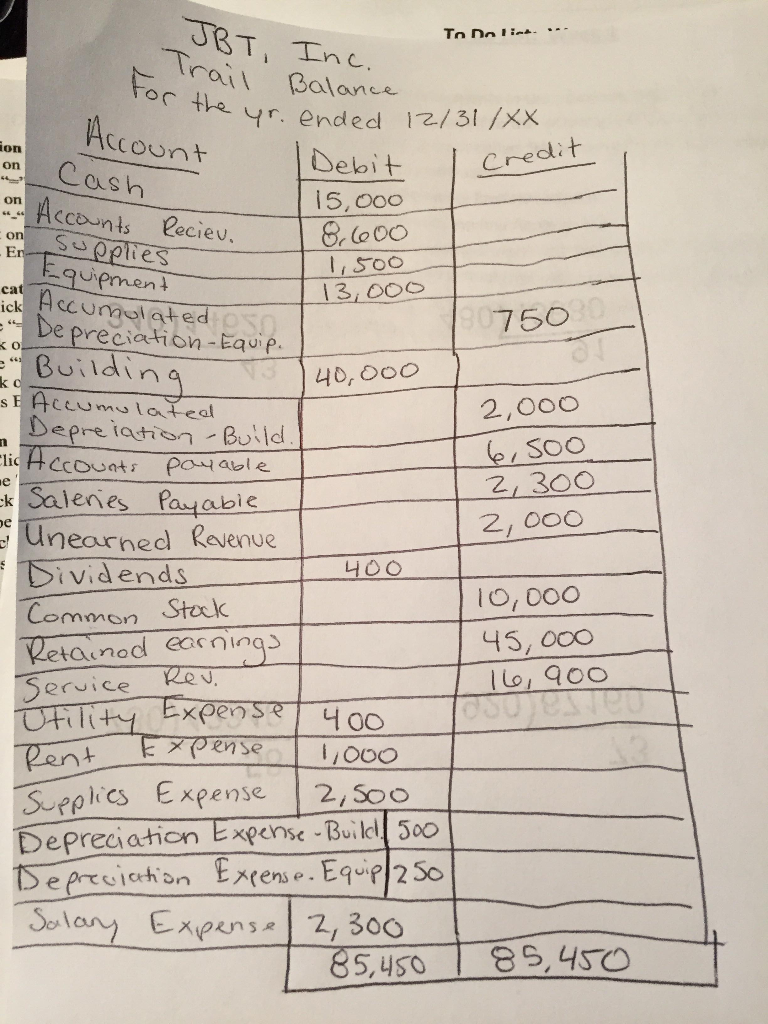 To Do List:
JBT, Inc.
Trail Balance
For the yr. ended 12/31/XX
Account Debit Credit
Cash 15,000
Accounts Reciev. 8,600
Supplies 1,500
Equipment 13,000
Accumulated
Depreciation-Equip. 750
Building 40,000
Accumulated
Depreiation-Build. 2,000
Accounts payable 6,500
Saleries Payable 2,300
Unearned Revenue 2,000
Dividends 400
Common Stock 10,000
Retained earnings 45,000
Service Rev. 16,900
Utility Expense 400
Rent Expense 1,000
Supplies Expense 2,500
Depreciation Expense-Build. 500
Depreciation Expense-Equip 250
Salary Expense 2,300
85,450 85,450